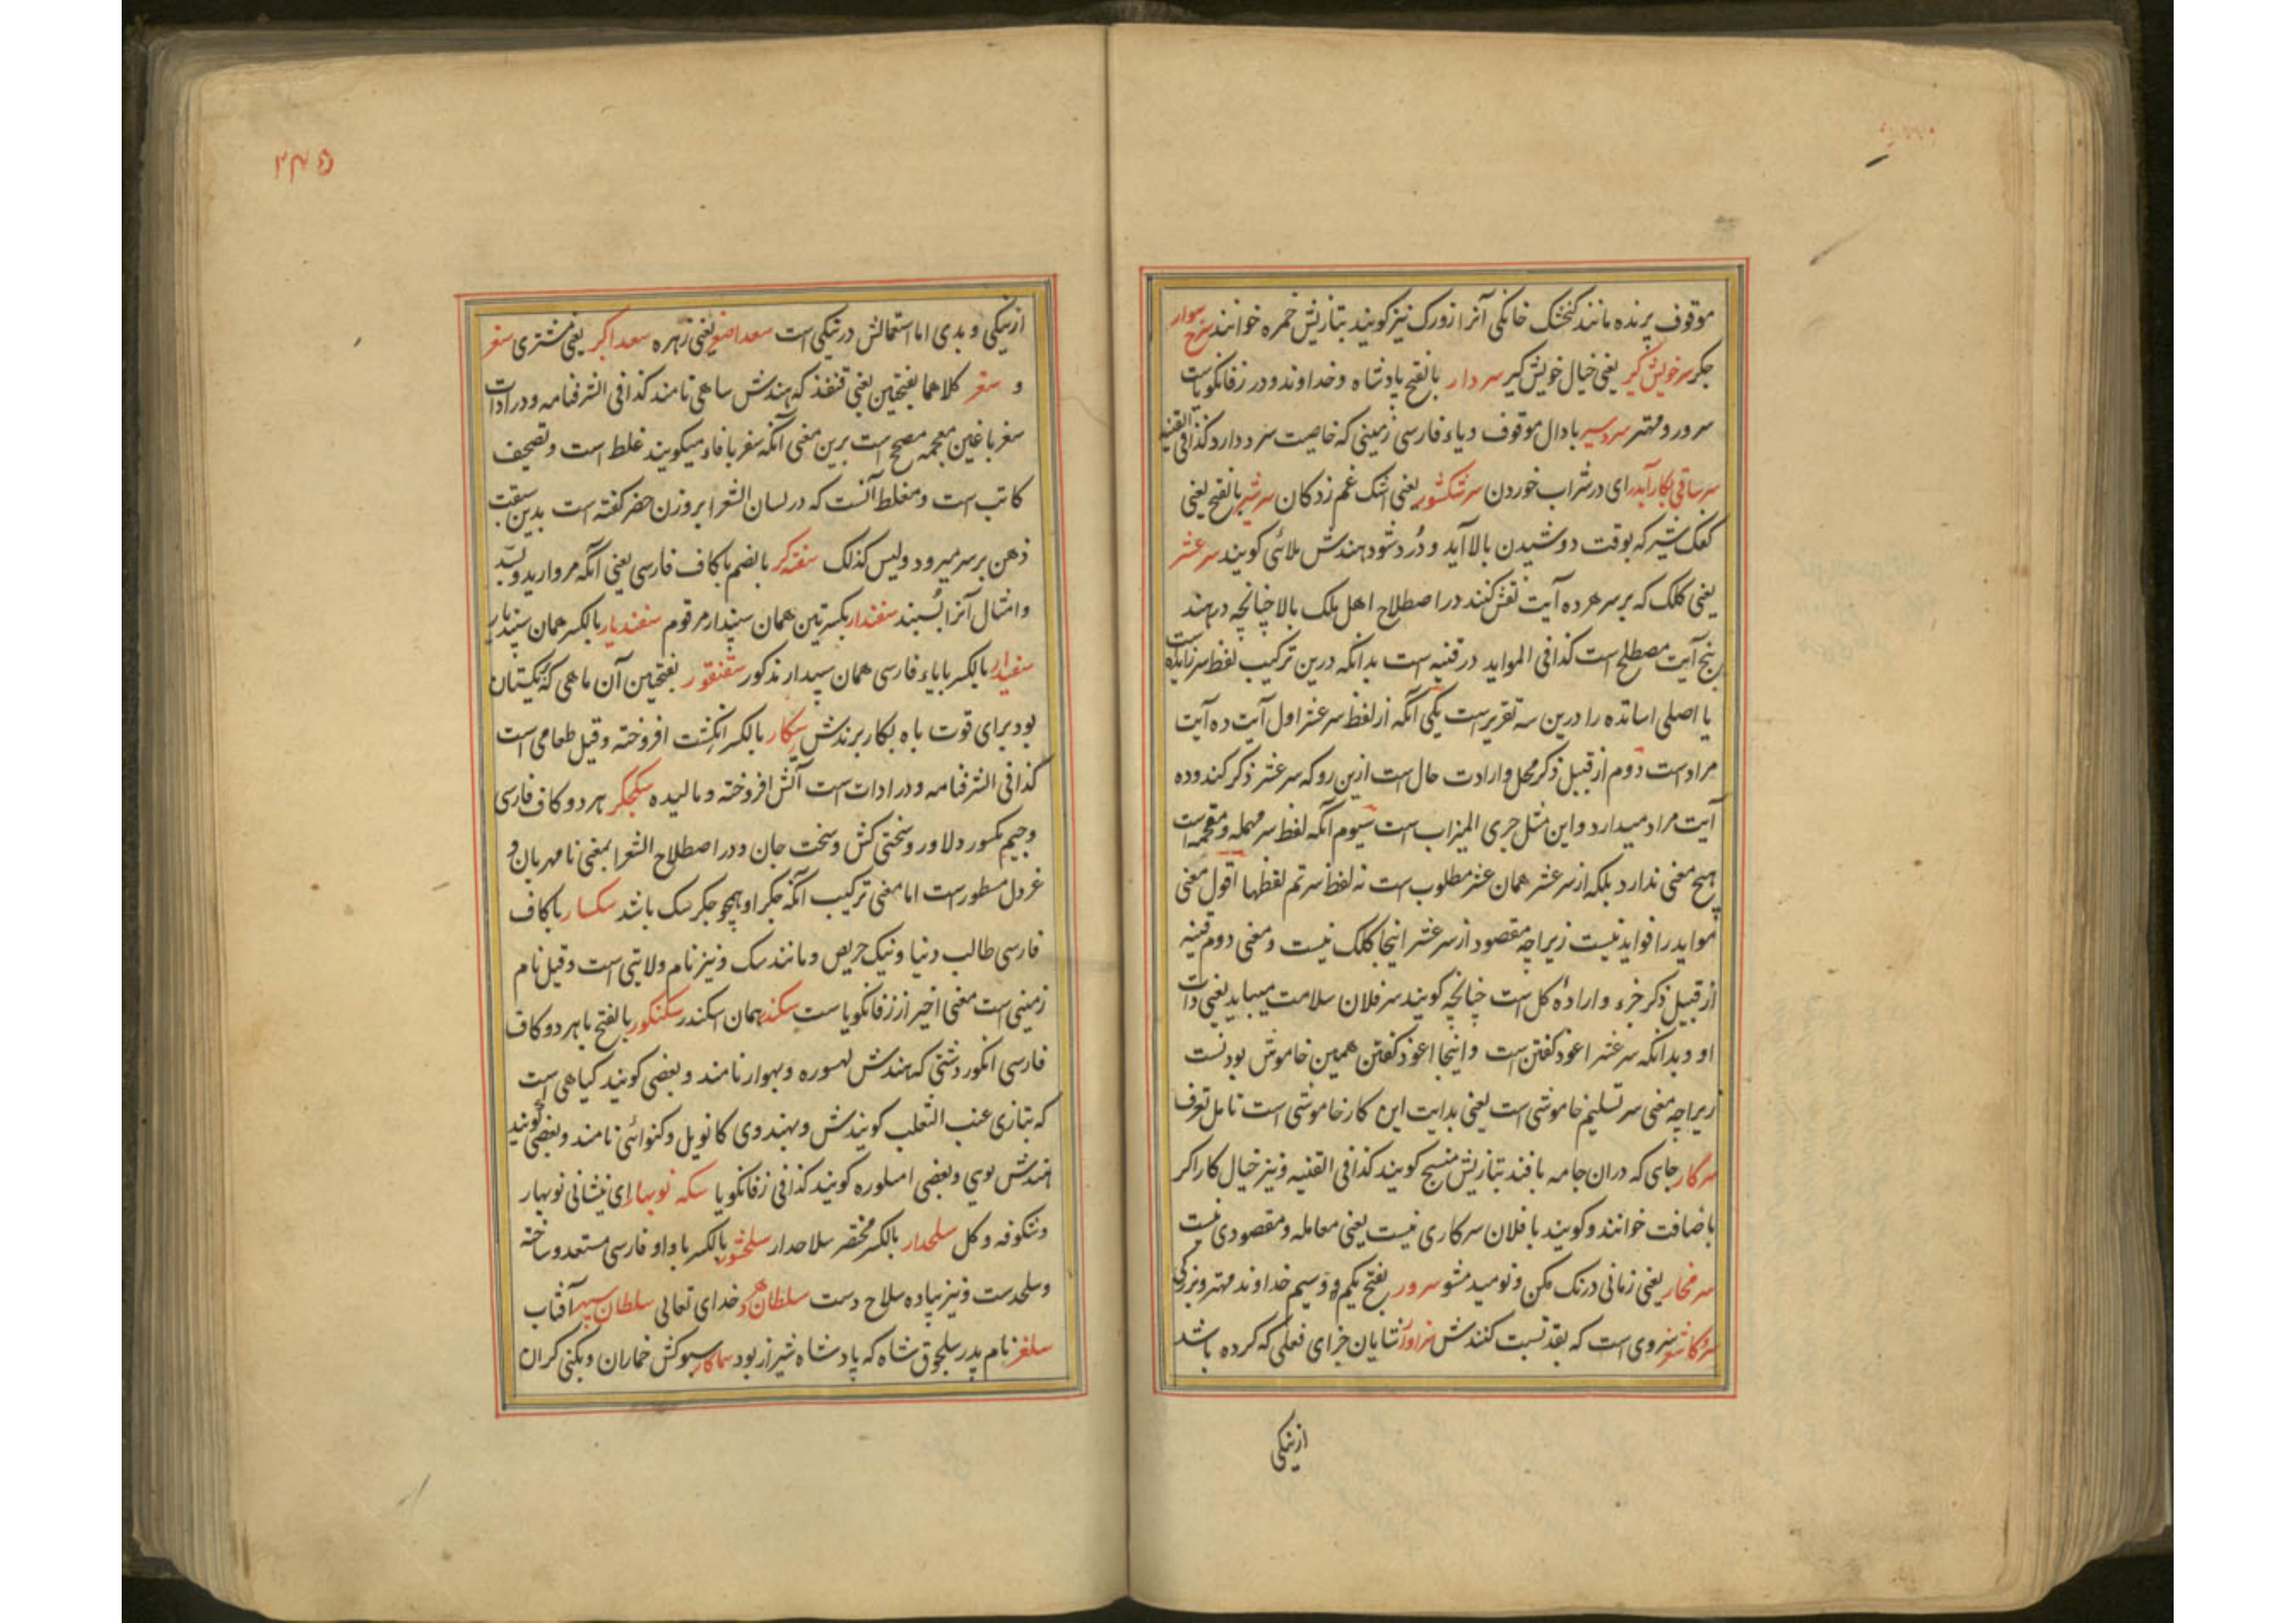 موقوف پرنده مانند کنجشک خانکی آنرا زورک نیز کویند بتازیش حمره خوانند سرخ سوار
جکر سر خویش کیر یعنی خیال خویش کیر سردار بالفتح پادشاه و خداوند و در زفانکویاست
سرور و مهتر سردسیر با دال موقوف و یاء فارسی زمینی که خاصیت سرد دارد کذا فی القنیه
سر ساقی بکار آید رای در شراب خوردن سرشک شور یعنی اشک غم زدکان سرشیر بالفتح یعنی
کفک شیر که بوقت دوشیدن بالا آید و دُرد شود هندش ملائی کویند سر عشر
یعنی کلک که بر سر هر ده آیت نقش کنند در اصطلاح اهل ملک بالا چنانچه در هند
پنج آیت مصطلح است کذا فی الموايد در قنیه است بدانکه درین ترکیب لفظ سر زایده است
یا اصلی اساتده را درین سه تقریر است یکی آنکه از لفظ سر عشر اول آیت ده آیت
مراد است دوم از قبیل ذکر محل و ارادت حال است ازین رو که سر عشر ذکر کند و ده
آیت مراد میدارد و این مثل جری المیزاب است سیوم آنکه لفظ سر مهمله و مقحمه است
هیچ معنی ندارد بلکه از سر عشر همان عشر مطلوب است نه لفظ سر تم لفظها اقول معنی
مواید را فواید نیست زیراچه مقصود از سر عشر اینجا کلک نیست و معنی دوم قنیه
از قبیل ذکر جزء و اراده کل است چنانچه کویند سر فلان سلامت میباید یعنی ذات
او و بدانکه سر عشر اعوذ کفتن است و اینجا اعوذ کفتن همین خاموش بودنست
زیراچه معنی سر تسلیم خاموشی است یعنی بدایت این کار خاموشی است تامل تعرف
سرکار جای که دران جامه بافند بتازیش منسج کویند کذا فی القنیه و نیز خیال کار اکر
باضافت خوانند و کویند با فلان سرکاری نیست یعنی معامله و مقصودی نیست
سر مخار یعنی زمانی درنک مکن و نومید مشو سرور بفتح یکم و سیم خداوند مهتر و بزرکی
سرو کاشغر سروی است که بقد نسبت کنندش سزاوار شایان جزای فعلی که کرده باشد
از نیکی
۲۴۵
از نیکی و بدی اما استعمالش در نیکی است سعد اصغر یعنی زهره سعد اکبر یعنی مشتری سغر
و سقر کلاهما بفتحتین یعنی قنفذ که هندش ساهی نامند کذا فی الشرفنامه و در ادات
سغر با غین معجمه مصحح است برین معنی آنکه سفر با فاء میکویند غلط است و تصحیف
کاتب است و مغلط آنست که در لسان الشعرا بر وزن حضر کفته است بدین سبقت
ذهن بر سر میرود و لیس کذلک سفته کر بالضم با کاف فارسی یعنی آنکه مروارید و بُسّد
و امثال آنرا بسنبد سفندار بکسرتین همان سپندار مرقوم سفندیار بالکسر همان سپندیار
سفیدار بالکسر با یاء فارسی همان سپیدار مذکور سقنقور بفتحتین آن ماهی که ریکستان
بود برای قوت باه بکار برندش سکار بالکسر انکشت افروخته و قیل طعامی است
کذا فی الشرفنامه و در ادات است آتش افروخته و مالیده سکجکر هر دو کاف فارسی
و جیم مکسور دلاور و سختی کش و سخت جان و در اصطلاح الشعرا بمعنی نامهربان و
غردل مسطور است اما معنی ترکیب آنکه جکر او همچو جکر سک باشد سکسار با کاف
فارسی طالب دنیا و نیک حریص و مانند سک و نیز نام ولایتی است و قیل نام
زمینی است معنی اخیر از زفانکویا است سکندر همان اسکندر سکنکور بالفتح با هر دو کاف
فارسی انکور دشتی که هندش لهسوره و بهوار نامند و بعضی کویند کیاهی است
که بتازی عنب الثعلب کویندش و بهندوی کانویل و کنوائی نامند و بعضی کویند
هندش لوي و بعضی املوره کویند کذا فی زفانکویا سکه نوبهار ای نشانی نوبهار
و شکوفه و کل سلحدار بالکسر مختصر سلاحدار سلحشور بالکسر با واو فارسی مستعد و ساخته
و سلحدست و نیز پیاده سلاح دست سلطان دهر خدای تعالی سلطان سپهر آفتاب
سلغر نام پدر سلجوق شاه که پادشاه شیراز بود سماکار سبوکش خماران و بکنی کران